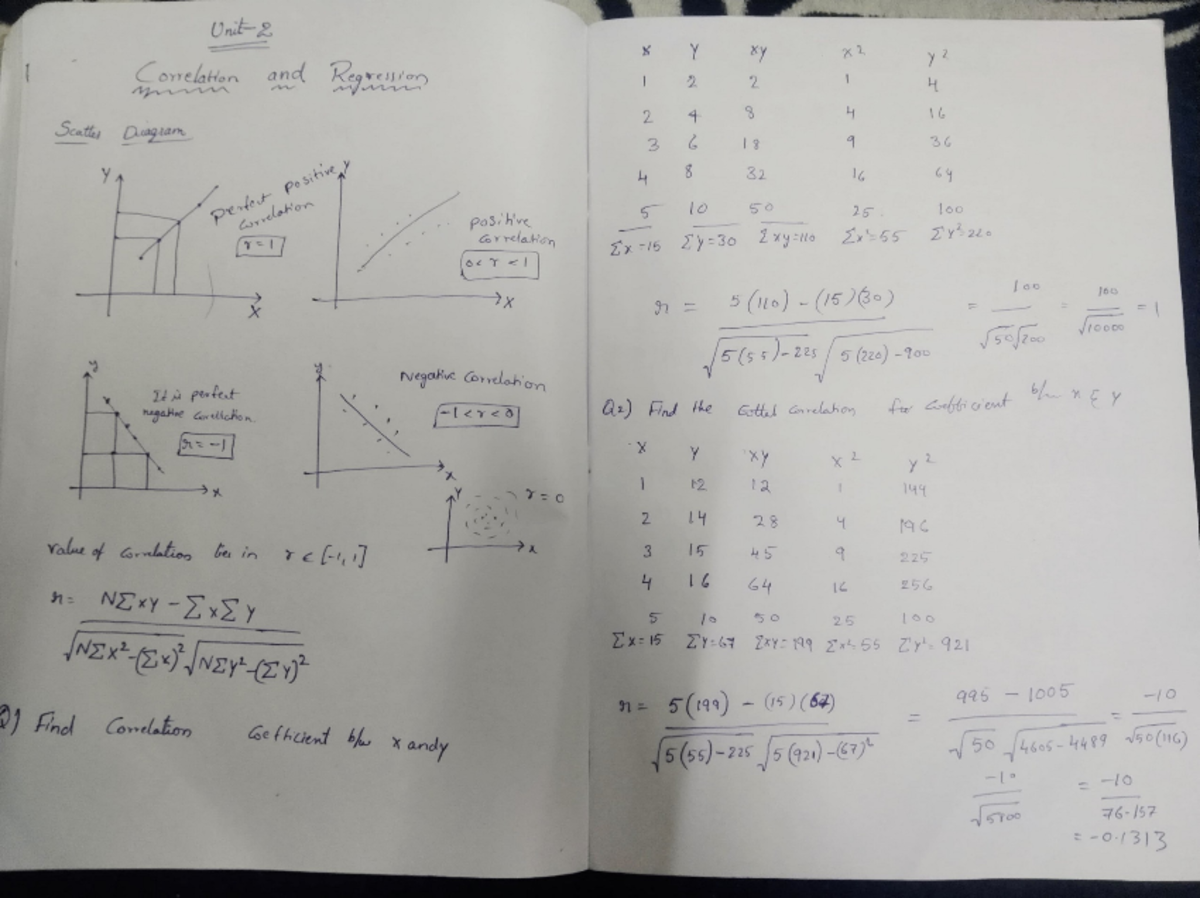 Unit-2
Correlation and Regression
Scatter Diagram
Y
perfect positive
Correlation
r = 1
X
Y
positive
Correlation
0 < r < 1
X
y
It is perfect
negative Corellation
r = -1
x
y
Negative Correlation
-1 < r < 0
x
Y
r = 0
x
value of Correlation lies in r ∈ [-1, 1]
r = NΣxy - ΣxΣy / √NΣx²-(Σx)² √NΣy²-(Σy)²
Q) Find Correlation Coefficient b/w x and y
X Y XY X² Y²
1 2 2 1 4
2 4 8 4 16
3 6 18 9 36
4 8 32 16 64
5 10 50 25 100
Σx=15 Σy=30 Σxy=110 Σx²=55 Σy²=220
r = 5(110) - (15)(30) / √5(55)-225 √5(220)-900 = 100 / √50√200 = 100 / √10000 = 1
Q2) Find the Correlation Coefficient b/w x & y
X Y XY X² Y²
1 12 12 1 144
2 14 28 4 196
3 15 45 9 225
4 16 64 16 256
5 10 50 25 100
Σx=15 Σy=67 Σxy=199 Σx²=55 Σy²=921
r = 5(199) - (15)(67) / √5(55)-225 √5(921)-(67)² = 995 - 1005 / √50 √4605-4489 = -10 / √50(116)
-10 / √5800 = -10 / 76.157
= -0.1313